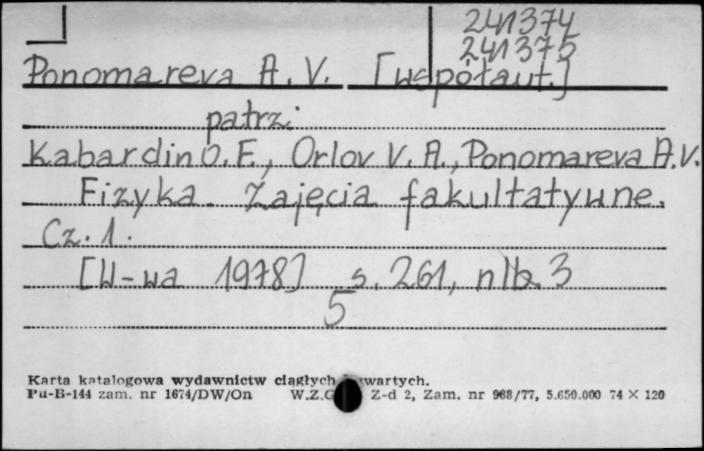 241374
241375
Ponomareva A. V. [współaut.]
patrz:
Kabardin O. F., Orlov V. A., Ponomareva A. V.
Fizyka. Zajęcia fakultatywne.
Cz. 1.
[W-wa 1978] s. 261, nlb. 3
5
Karta katalogowa wydawnictw ciągłych wartych.
Pu-B-144 zam. nr 1674/DW/On W.Z.G Z-d 2, Zam. nr 968/77, 5.650.000 74 X 120